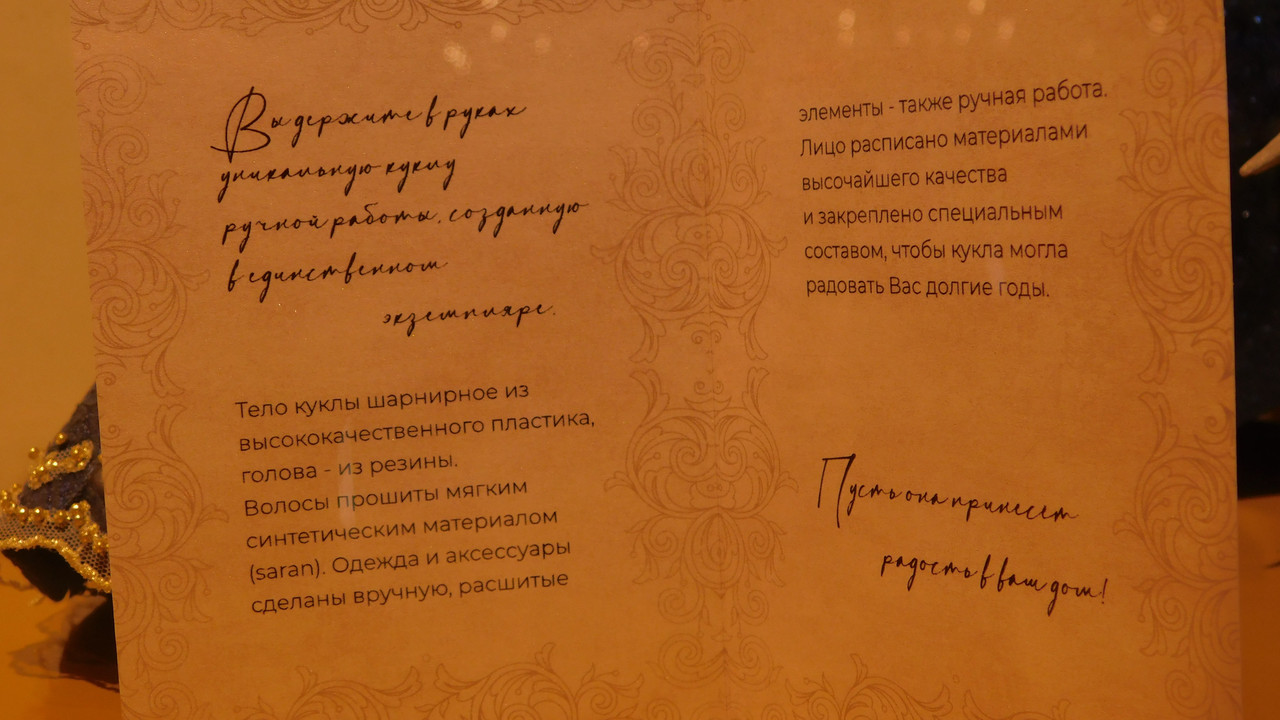 Вы держите в руках
уникальную куклу
ручной работы, созданную
в единственном
экземпляре.
Тело куклы шарнирное из
высококачественного пластика,
голова - из резины.
Волосы прошиты мягким
синтетическим материалом
(saran). Одежда и аксессуары
сделаны вручную, расшитые
элементы - также ручная работа.
Лицо расписано материалами
высочайшего качества
и закреплено специальным
составом, чтобы кукла могла
радовать Вас долгие годы.
Пусть она принесет
радость в ваш дом!